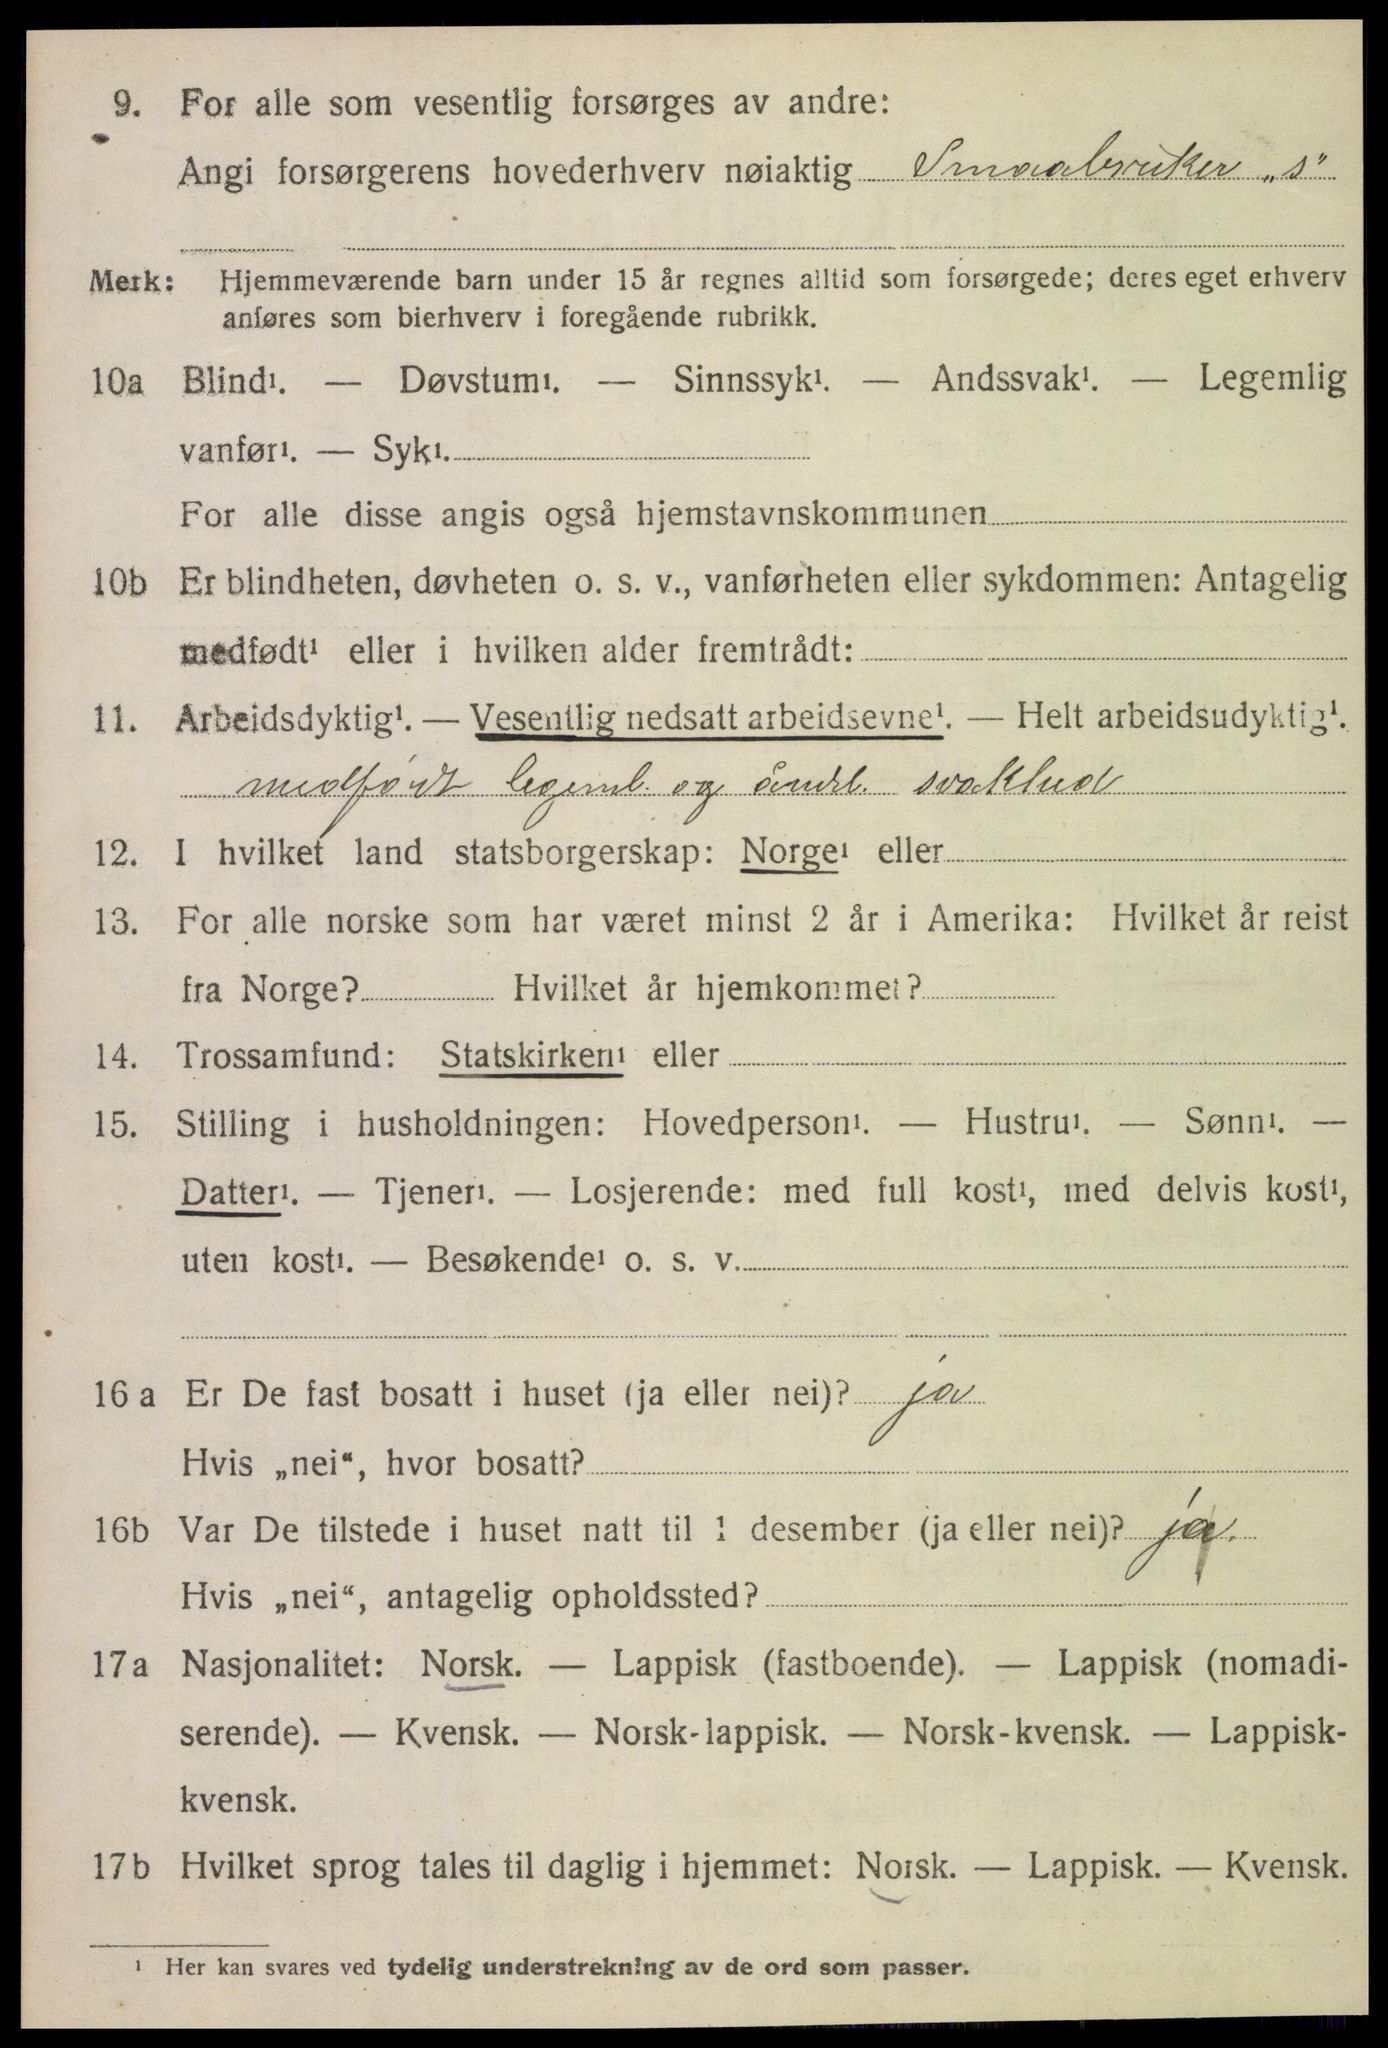 9. For alle som vesentlig forsørges av andre:
Angi forsørgerens hovederhverv nøiaktig Smaabruker „s"
Merk: Hjemmeværende barn under 15 år regnes alltid som forsørgede; deres eget erhverv
anføres som bierhverv i foregående rubrikk.
10a Blind¹. — Døvstum¹. — Sinnssyk¹. — Andssvak¹. — Legemlig
vanfør¹. — Syk¹.
For alle disse angis også hjemstavnskommunen
10b Er blindheten, døvheten o. s. v., vanførheten eller sykdommen: Antagelig
medfødt¹ eller i hvilken alder fremtrådt:
11. Arbeidsdyktig¹. — Vesentlig nedsatt arbeidsevne¹. — Helt arbeidsudyktig¹.
medfødt legeml. og åndl. svakhed
12. I hvilket land statsborgerskap: Norge¹ eller
13. For alle norske som har været minst 2 år i Amerika: Hvilket år reist
fra Norge? Hvilket år hjemkommet?
14. Trossamfund: Statskirken¹ eller
15. Stilling i husholdningen: Hovedperson¹. — Hustru¹. — Sønn¹. —
Datter¹. — Tjener¹. — Losjerende: med full kost¹, med delvis kost¹,
uten kost¹. — Besøkende¹ o. s. v.
16 a Er De fast bosatt i huset (ja eller nei)? ja
Hvis „nei“, hvor bosatt?
16b Var De tilstede i huset natt til 1 desember (ja eller nei)? ja.
Hvis „nei“, antagelig opholdssted?
17 a Nasjonalitet: Norsk. — Lappisk (fastboende). — Lappisk (nomadi-
serende). — Kvensk. — Norsk-lappisk. — Norsk-kvensk. — Lappisk-
kvensk.
17 b Hvilket sprog tales til daglig i hjemmet: Norsk. — Lappisk. — Kvensk.
¹ Her kan svares ved tydelig understrekning av de ord som passer.